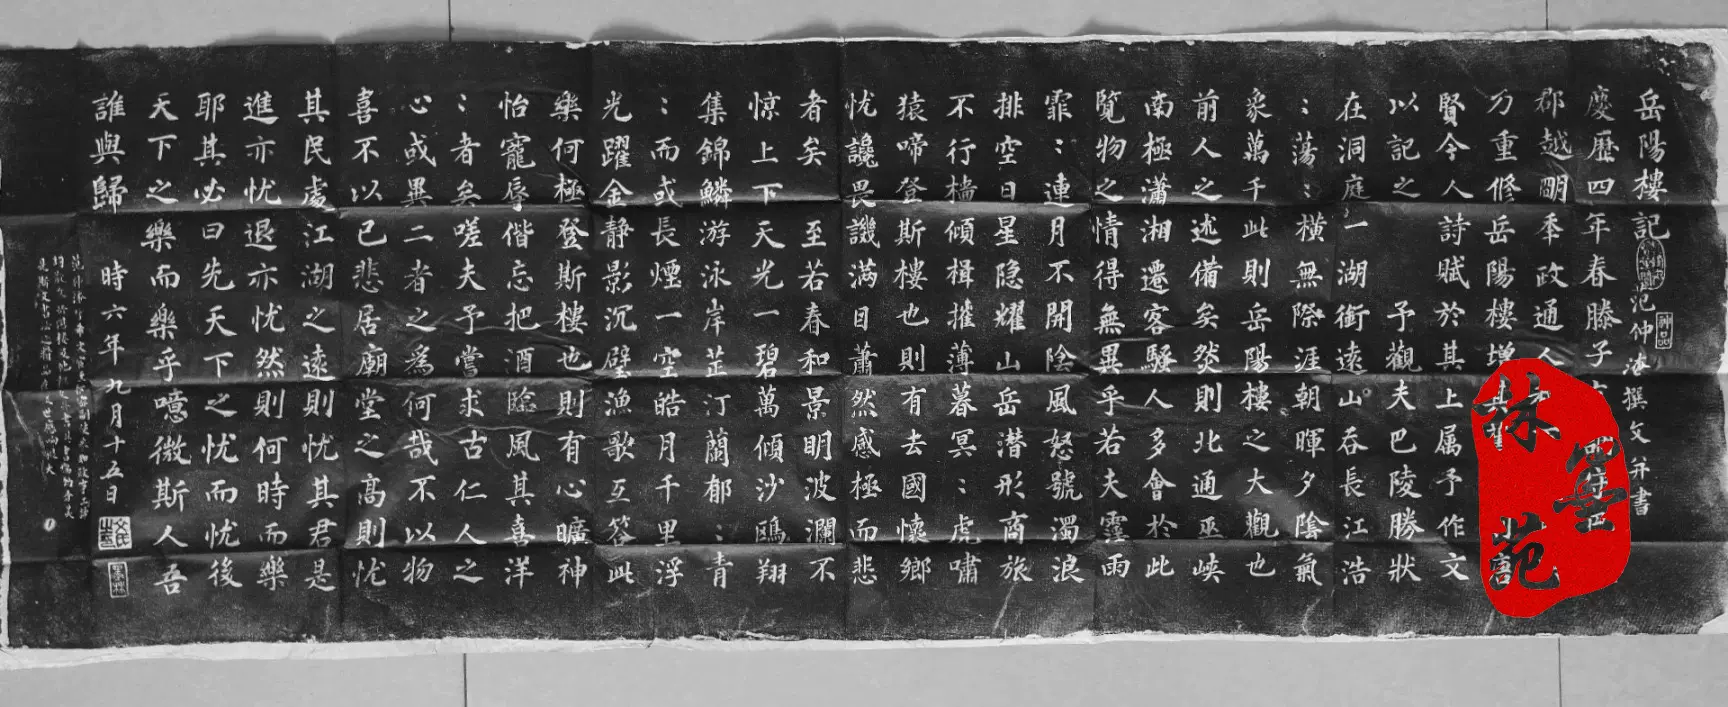 岳陽樓記 范仲淹撰文并書
慶歷四年春滕子
郡越明年政通人
乃重修岳陽樓增其
賢今人詩賦於其上属予作文
以記之 予觀夫巴陵勝狀
在洞庭一湖銜遠山吞長江浩
：蕩：橫無際涯朝暉夕陰氣
象萬千此則岳陽樓之大觀也
前人之述備矣然則北通巫峽
南極瀟湘遷客騷人多會於此
覽物之情得無異乎若夫霪雨
霏：連月不開陰風怒號濁浪
排空日星隐耀山岳潜形商旅
不行檣傾楫摧薄暮冥：虎嘯
猿啼登斯樓也則有去國懷鄉
忧讒畏譏滿目蕭然感極而悲
者矣 至若春和景明波瀾不
惊上下天光一碧萬傾沙鷗翔
集錦鱗游泳岸芷汀蘭郁：青
：而或長煙一空皓月千里浮
光躍金静影沉璧漁歌互答此
樂何極登斯樓也則有心曠神
怡寵辱偕忘把酒臨風其喜洋
：者矣嗟夫予嘗求古仁人之
心或異二者之為何哉不以物
喜不以己悲居廟堂之高則忧
其民處江湖之遠則忧其君是
進亦忧退亦忧然則何時而樂
耶其必曰先天下之忧而忧後
天下之樂而樂乎噫微斯人吾
誰與歸 時六年九月十五日
林墨範